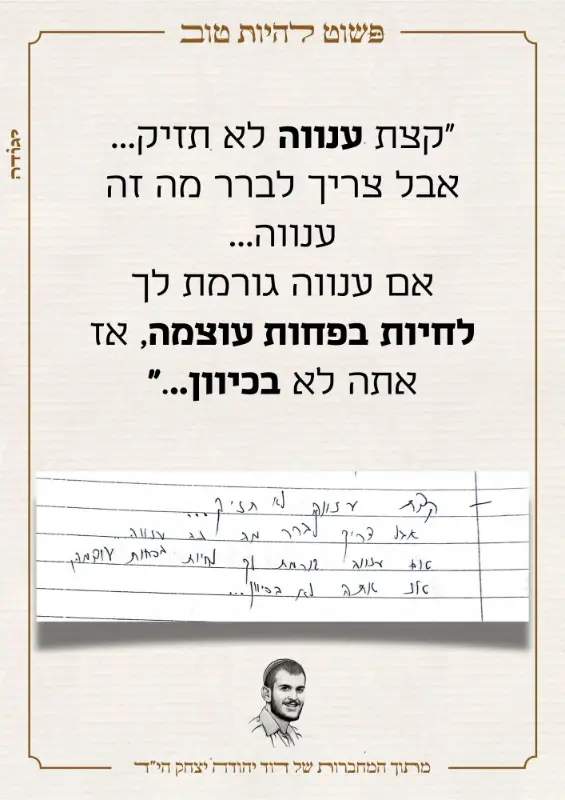 פשוט להיות טוב
לגודה
"קצת ענווה לא תזיק...
אבל צריך לברר מה זה
ענווה...
אם ענווה גורמת לך
לחיות בפחות עוצמה, אז
אתה לא בכיוון..."
קצת ענווה לא תזיק...
אבל צריך לברר מה זה ענווה...
אם ענווה גורמת לך לחיות בפחות עוצמה,
אז אתה לא בכיוון...
מתוך המחברות של דוד יהודה יצחק הי"ד